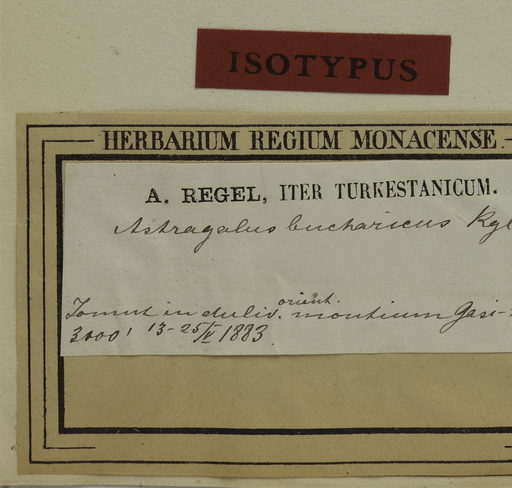 ISOTYPUS
HERBARIUM REGIUM MONACENSE.
A. REGEL, ITER TURKESTANICUM.
Astragalus bucharicus Rgl
in decliv. orient. montium Gasi-
3000' 13-25/IV 1883.